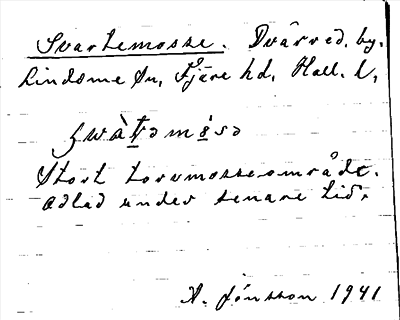 Svartemosse. Dvärred. by.
Lindome sn, Fjäre hd, Hall. l,
Stort torvmosseområde.
Odlad under senare tid.
A. Jönsson 1941